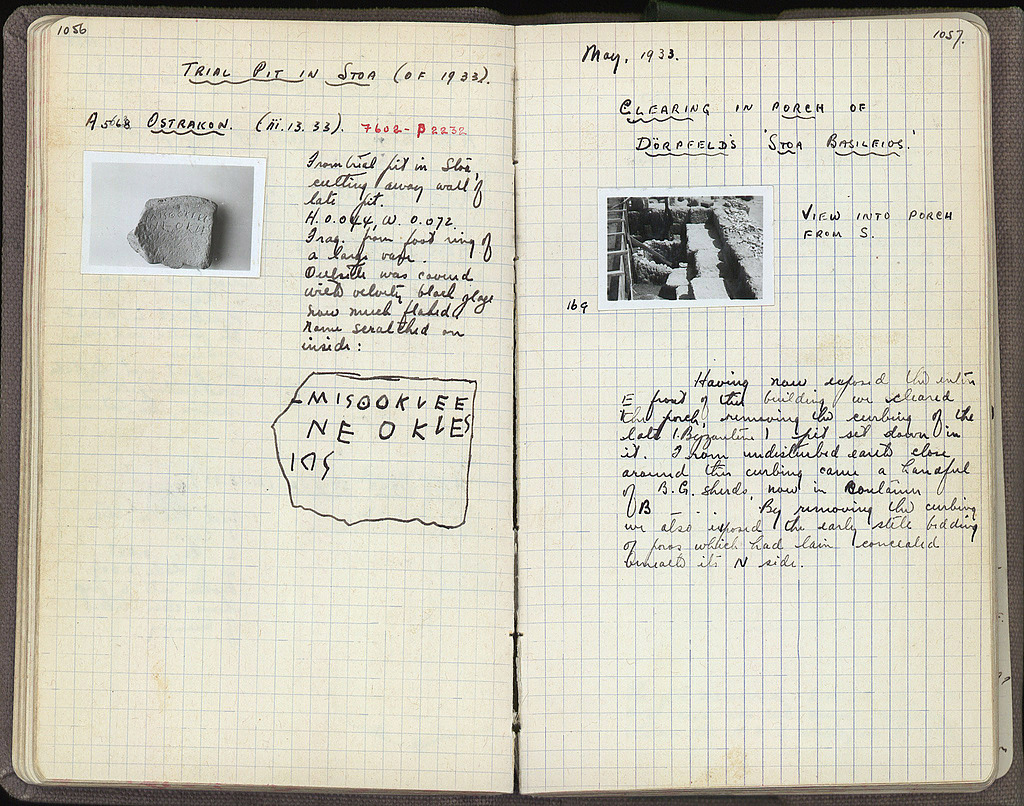 1056
TRIAL PIT IN STOA (OF 1933).
A 568 OSTRAKON. (iii.13.33). 7602- P 2232
From trial pit in Stoa,
cutting away wall of
late pit.
H. 0.044, W. 0.072.
Frag. from foot ring of
a large vase.
Outside was covered
with velvety black glaze
now much flaked.
Name scratched on
inside:
NE OKLES
1057.
May, 1933.
CLEARING IN PORCH OF
DÖRPFELD'S 'STOA BASILEIOS.'
VIEW INTO PORCH
FROM S.
169
Having now exposed the entire
E front of this building we cleared
the porch, removing the curbing of the
late (Byzantine) pit set down in
it. From undisturbed earth close
around this curbing came a handful
of B.G. sherds, now in
B _ . . . By removing the curbing
we also exposed the early stele bedding
of poros which had lain concealed
beneath its N side.